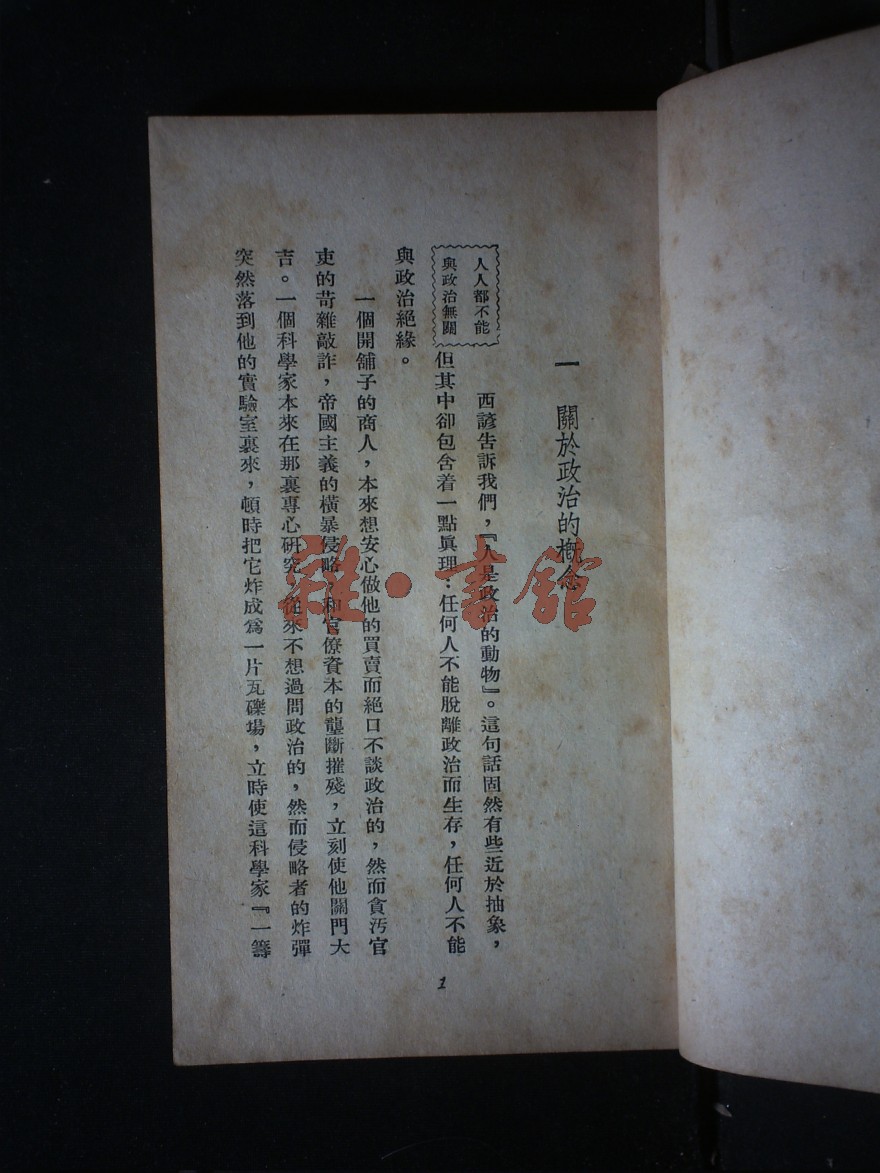 一 關於政治的概念
人人都不能
與政治無關
西諺吿訴我們，『人是政治的動物』。這句話固然有些近於抽象，
但其中卻包含着一點眞理：任何人不能脫離政治而生存，任何人不能
與政治絕緣。
一個開舖子的商人，本來想安心做他的買賣而絕口不談政治的，然而貪汚官
吏的苛雜敲詐，帝國主義的橫暴侵略，和官僚資本的壟斷摧殘，立刻使他關門大
吉。一個科學家本來在那裏專心研究，從來不想過問政治的，然而侵略者的炸彈
突然落到他的實驗室裏來，頓時把它炸成爲一片瓦礫場，立時使這科學家『一籌
1
雜·書館